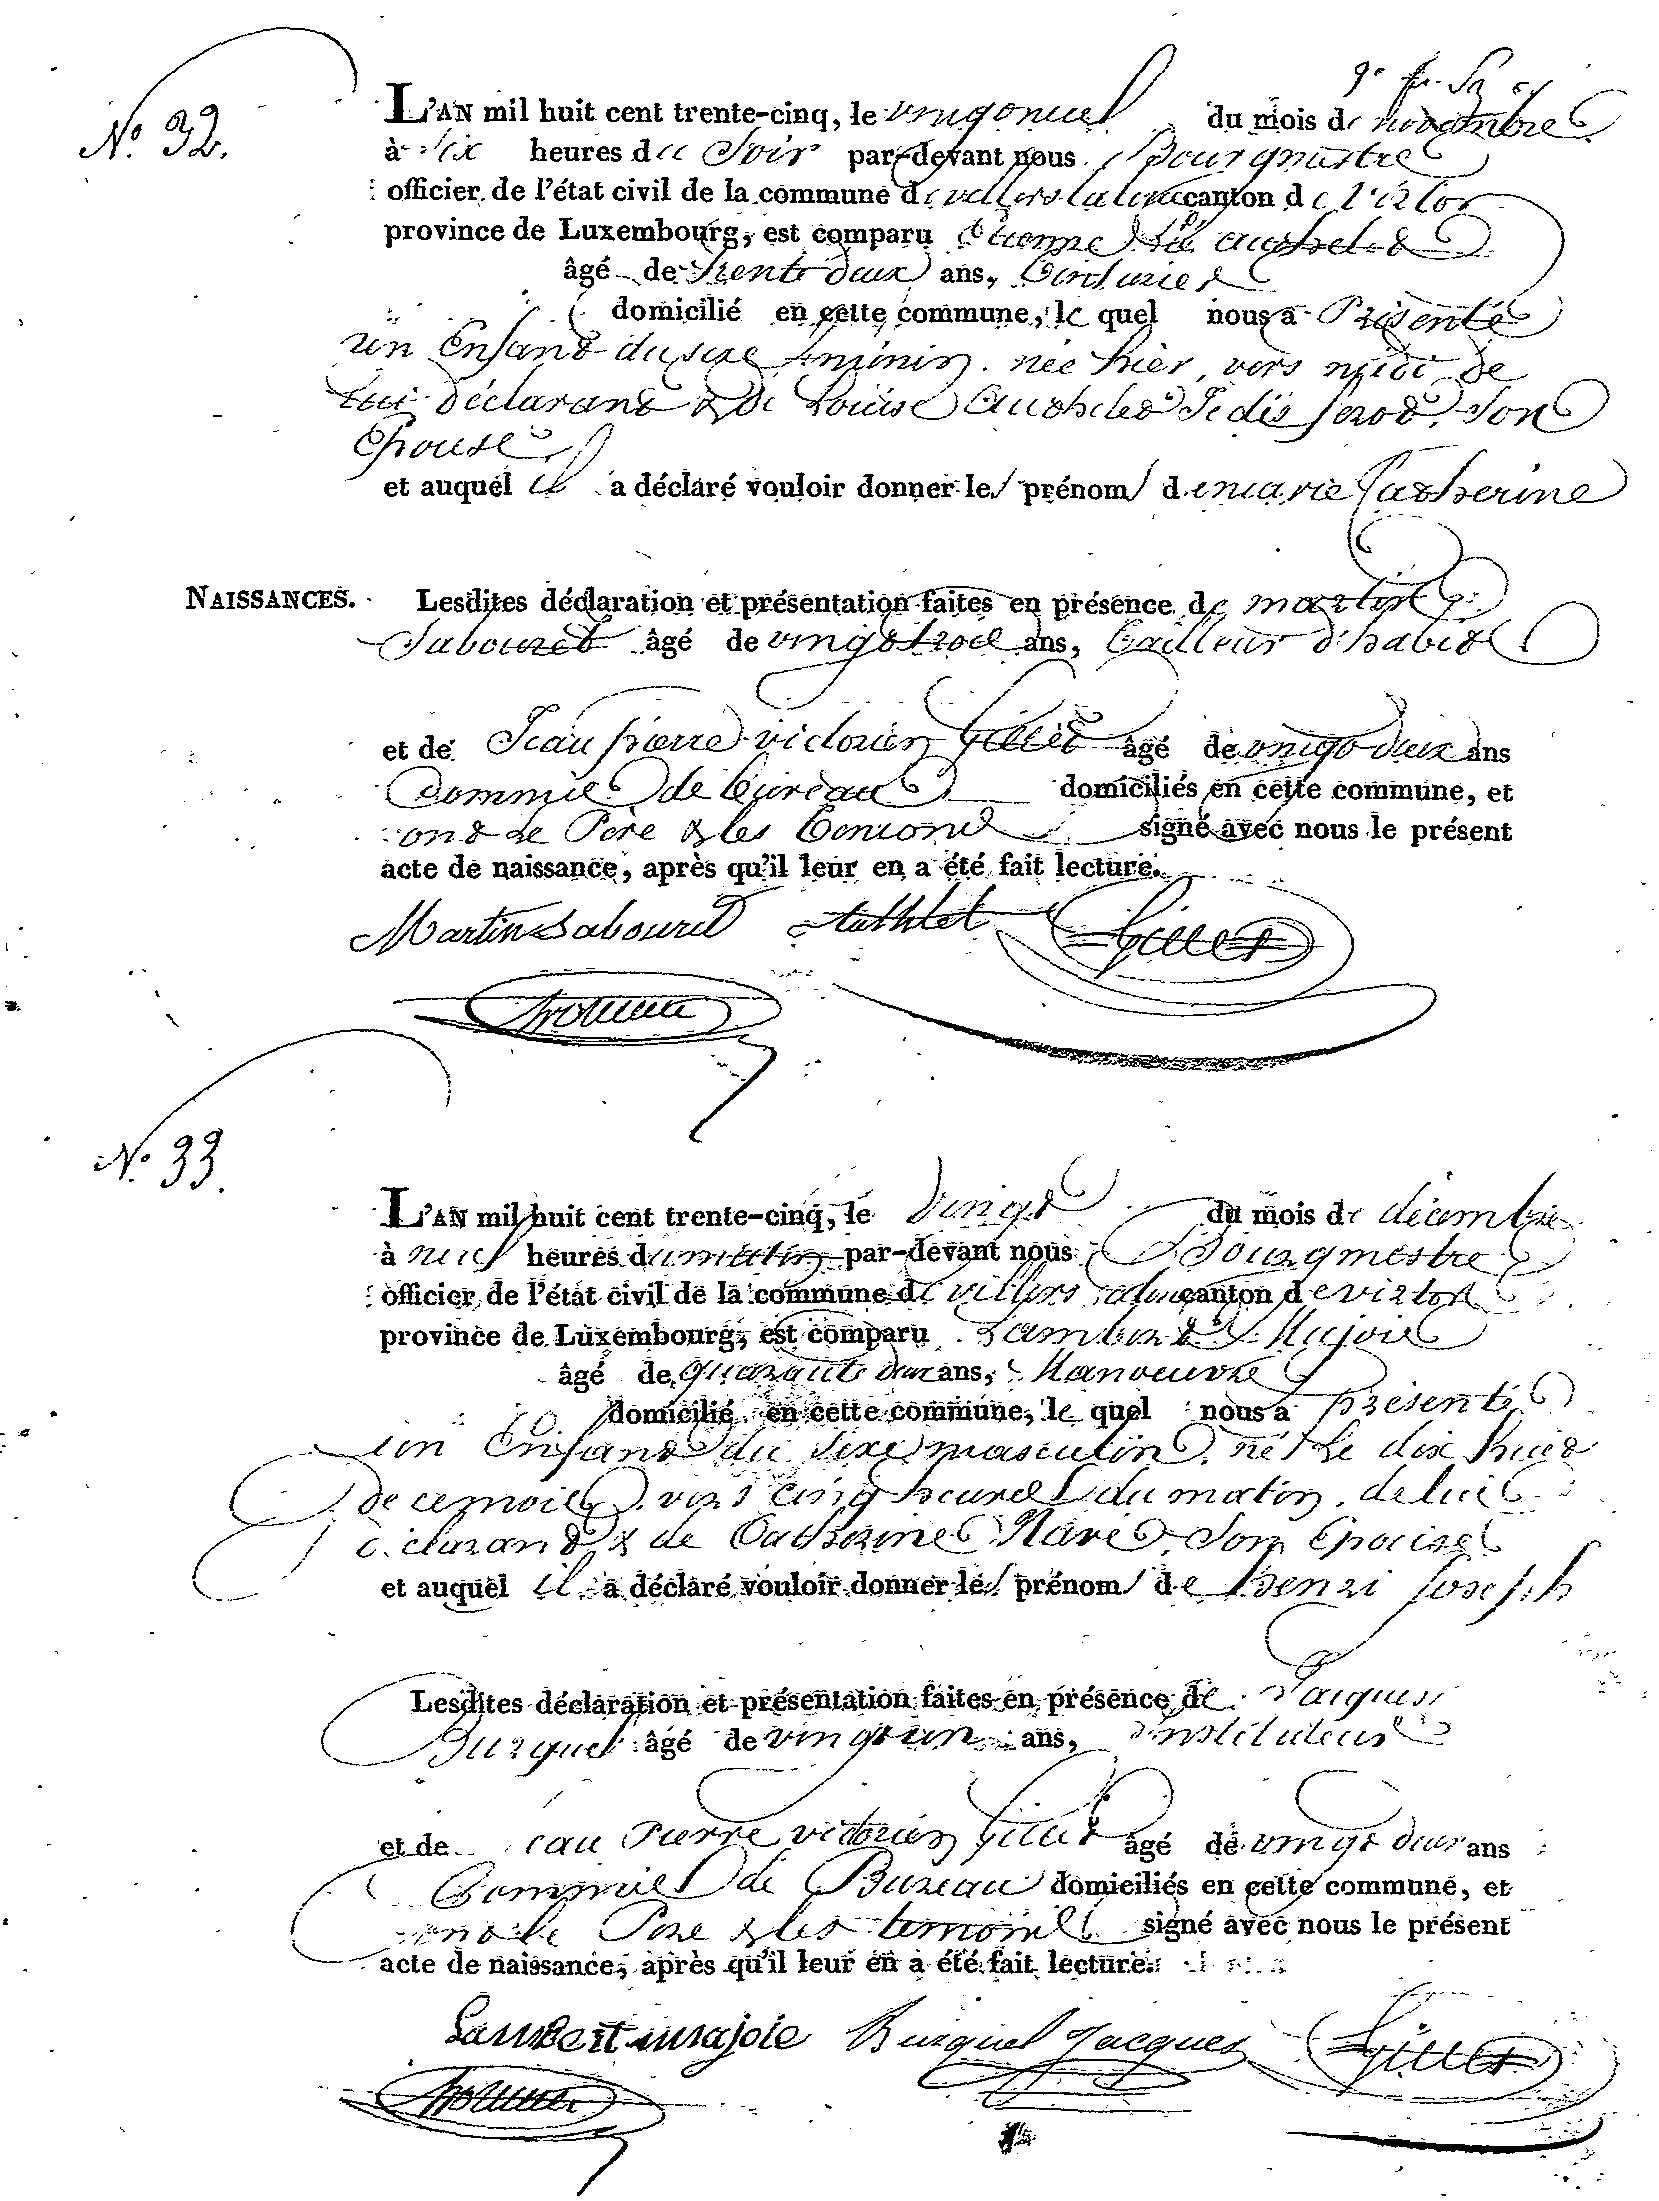 N.º 32.
L'AN mil huit cent trente-cinq, le du mois de novembre
à Six heures du Soir par-devant nous Bourgmestre
officier de l'état civil de la commune de villers la loue canton de Virton
province de Luxembourg, est comparu Etienne
âgé de trente deux ans,
domicilié en cette commune, le quel nous a Présenté
un Enfant du sexe feminin. née hier, vers midi de
lui déclarant & de Louise Son
Epouse
et auquel il a déclaré vouloir donner les prénoms de marie Catherine
NAISSANCES. Lesdites déclaration et présentation faites en présence de martin
Sabouret âgé de vingt trois ans, tailleur d'habit
et de Jean pierre victorien Gillet âgé de vingt deux ans
Commis de bureau domiciliés en cette commune, et
ont Le Père & les temoins signé avec nous le présent
acte de naissance, après qu'il leur en a été fait lecture.
Martin Sabouret Authlet Gillet
N.º 33.
L'AN mil huit cent trente-cinq, le vingt du mois de décembre
à neuf heures du matin par-devant nous Bourgmestre
officier de l'état civil de la commune de villers la loue canton de virton
province de Luxembourg, est comparu Lambert Majoie
âgé de quarante deux ans, Manoeuvre
domicilié en cette commune, le quel nous a présenté
un Enfant du Sexe masculin, né Le dix huit
de ce mois, vers cinq heures du matin, de lui
déclarant & de Catherine Son Epouse
et auquel il a déclaré vouloir donner les prénoms de henri joseph
Lesdites déclaration et présentation faites en présence de Jacques
Burquel âgé de vingt un ans, instituteur
et de Jean Pierre victorien Gillet âgé de vingt deux ans
Commis de Bureau domiciliés en cette commune, et
ont le Pere & les temoins signé avec nous le présent
acte de naissance, après qu'il leur en a été fait lecture.
Lambert majoie Burquel Jacques Gillet